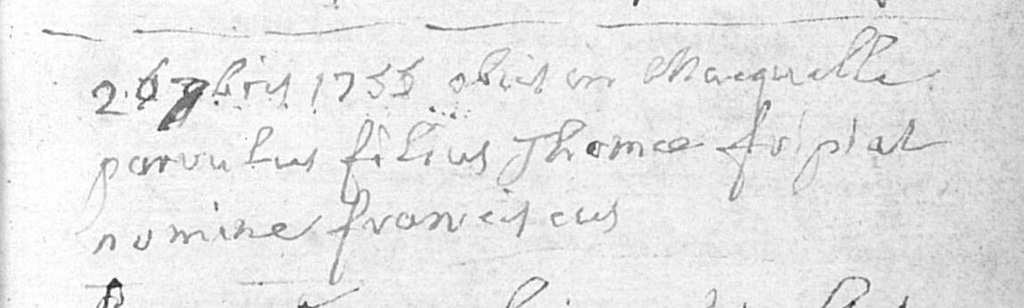 26 7bris 1755 obiit in Macquelle
parvulus filius Thomæ fripiat
nomine franciscus